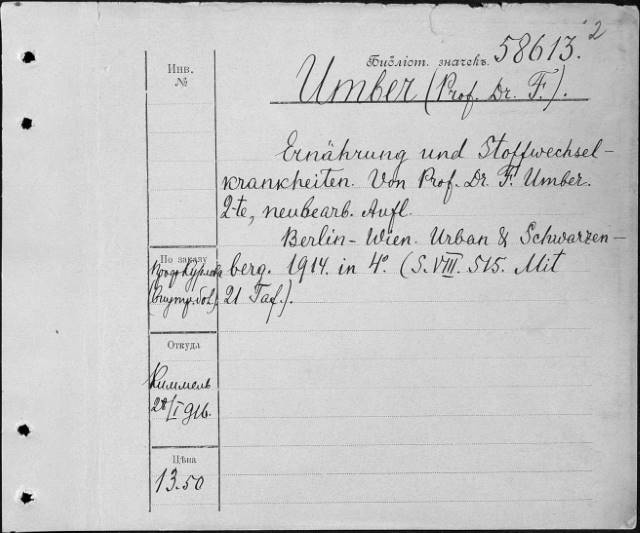 Библіот. значекъ. 58613.²
Инв.
№
Umber (Prof. Dr. F.).
Ernährung und Stoffwechsel-
krankheiten. Von Prof. Dr. F. Umber.
2-te, neubearb. Aufl.
Berlin-Wien. Urban & Schwarzen-
По заказу
berg. 1914. in 4º. (S. VIII. 515. Mit
21 Taf.).
Откуда
Киммель
28/I 916.
Цѣна
13.50